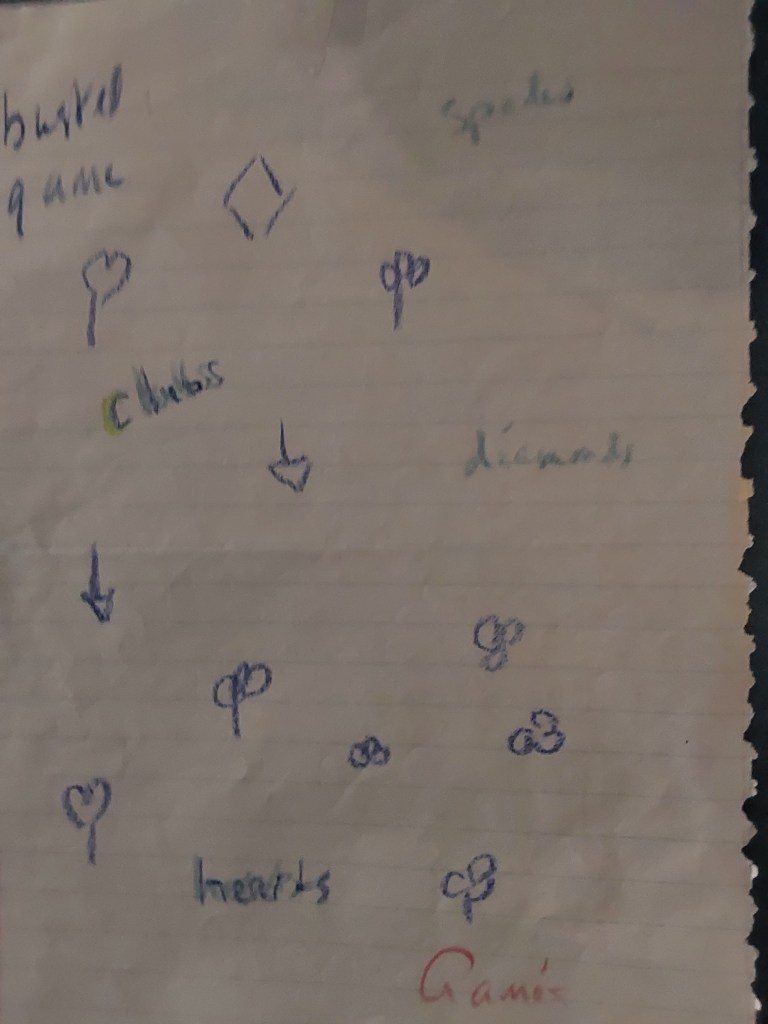 busted
game
spades
clubs
diamonds
hearts
Game